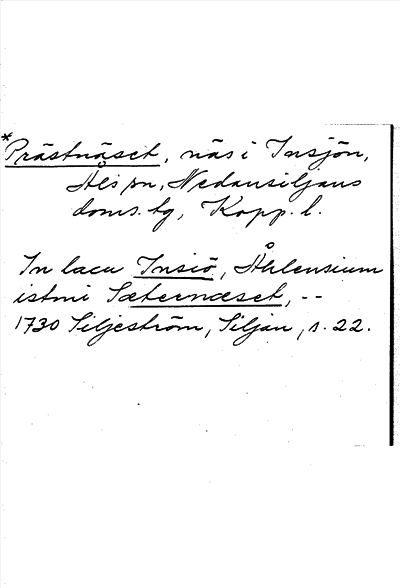 *Prästnäset, näs i Insjön,
Åls sn, Nedansiljans
doms. tg, Kopp. l.
In lacu Insiö, Åhlensium
istmi Sæternæset, --
1730 Siljeström, Siljan, s. 22.